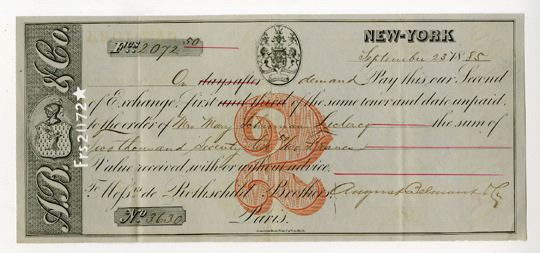 A.B. & Co.
Frs 2072
2072 50
NEW-YORK
September 23 1885
On days after demand Pay this our Second
of Exchange, first third of the same tenor and date unpaid
to the order of Mrs Mary Leclercq the sum of
Two thousand Seventy Two francs
Value received, with or without advice.
To Messrs. de Rothschild Brothers August Belmont & Co
No. 3630 Paris.
2